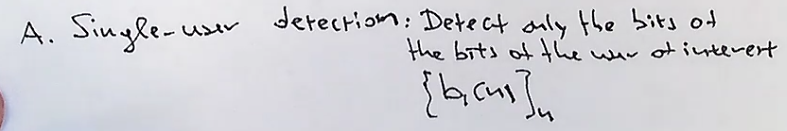 A. Single-user detection: Detect only the bits of
the bits of the user of interest
{b₁[n]}ₙ